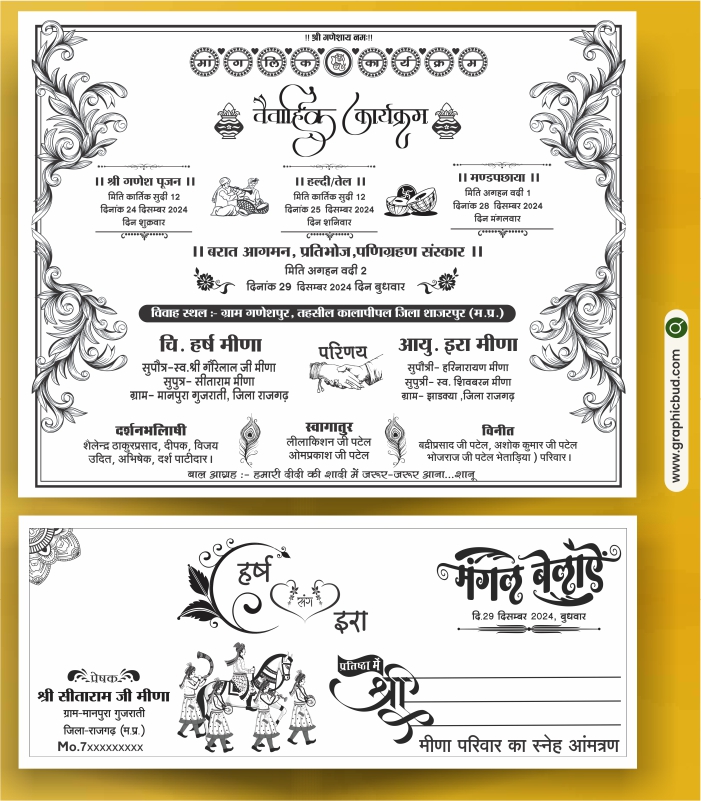 !! श्री गणेशाय नमः!!
मां ग लि क का र्य क्र म
वैवाहिक कार्यक्रम
।। श्री गणेश पूजन ।।
मिति कार्तिक सुदी 12
दिनांक 24 दिसम्बर 2024
दिन शुक्रवार
।। हल्दी/तेल ।।
मिति कार्तिक सुदी 12
दिनांक 25 दिसम्बर 2024
दिन शनिवार
।। मण्डपछाया ।।
मिति अगहन वदी 1
दिनांक 28 दिसम्बर 2024
दिन मंगलवार
।। बरात आगमन, प्रतिभोज,पणिग्रहण संस्कार ।।
मिति अगहन वदी 2
दिनांक 29 दिसम्बर 2024 दिन बुधवार
विवाह स्थल :- ग्राम गणेशपुर, तहसील कालापीपल जिला शाजरपुर (म.प्र.)
चि. हर्ष मीणा
सुपौत्र-स्व.श्री गौरेलाल जी मीणा
सुपुत्र- सीताराम मीणा
ग्राम- मानपुरा गुजराती, जिला राजगढ़
परिणय
आयु. इरा मीणा
सुपौत्री- हरिनारायण मीणा
सुपुत्री- स्व. शिवबरन मीणा
ग्राम- झाडक्या ,जिला राजगढ़
दर्शनभलिाषी
शेलेन्द्र ठाकुरप्रसाद, दीपक, विजय
उदित, अभिषेक, दर्श पाटीदार।
स्वागातुर
लीलाकिशन जी पटेल
ओमप्रकाश जी पटेल
विनीत
बद्रीप्रसाद जी पटेल, अशोक कुमार जी पटेल
भोजराज जी पटेल भेताड़िया ) परिवार।
बाल आग्रह :- हमारी दीदी की शादी में जरूर-जरूर आना...शानू
www.graphicbud.com
हर्ष
संग
इरा
मंगल बेलाऐं
दि.29 दिसम्बर 2024, बुधवार
प्रेषक
श्री सीताराम जी मीणा
ग्राम-मानपुरा गुजराती
जिला-राजगढ़ (म.प्र.)
Mo.7xxxxxxxxx
प्रतिष्ठा में
श्री
मीणा परिवार का स्नेह आंमत्रण